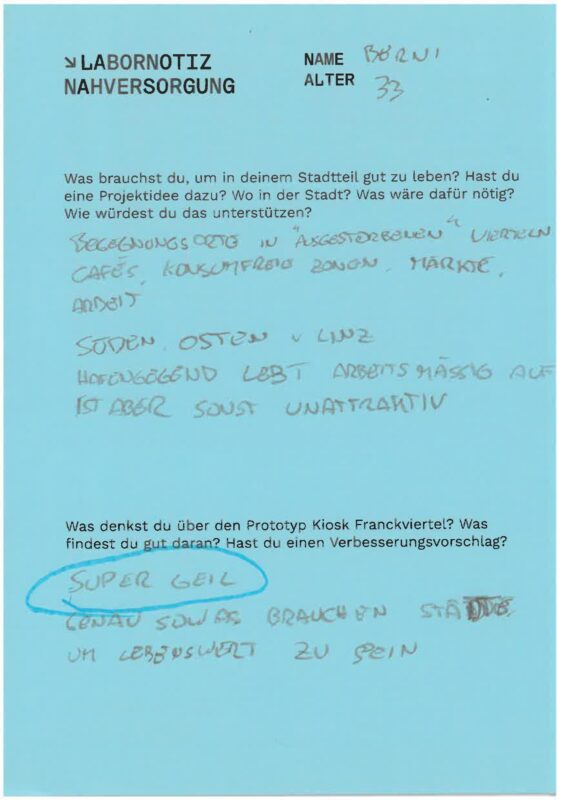 ↘ LABORNOTIZ
NAHVERSORGUNG
NAME BERNI
ALTER 33
Was brauchst du, um in deinem Stadtteil gut zu leben? Hast du
eine Projektidee dazu? Wo in der Stadt? Was wäre dafür nötig?
Wie würdest du das unterstützen?
BEGEGNUNGSORTE IN "AUSGESTORBENEN" VIERTELN
CAFÉS, KONSUMFREIE ZONEN, MÄRKTE,
ARBEIT
SÜDEN, OSTEN v LINZ
HAFENGEGEND LEBT ARBEITSMÄSSIG AUF
IST ABER SONST UNATTRAKTIV
Was denkst du über den Prototyp Kiosk Franckviertel? Was
findest du gut daran? Hast du einen Verbesserungsvorschlag?
SUPER GEIL
GENAU SOWAS BRAUCHEN STÄDTE
UM LEBENSWERT ZU SEIN